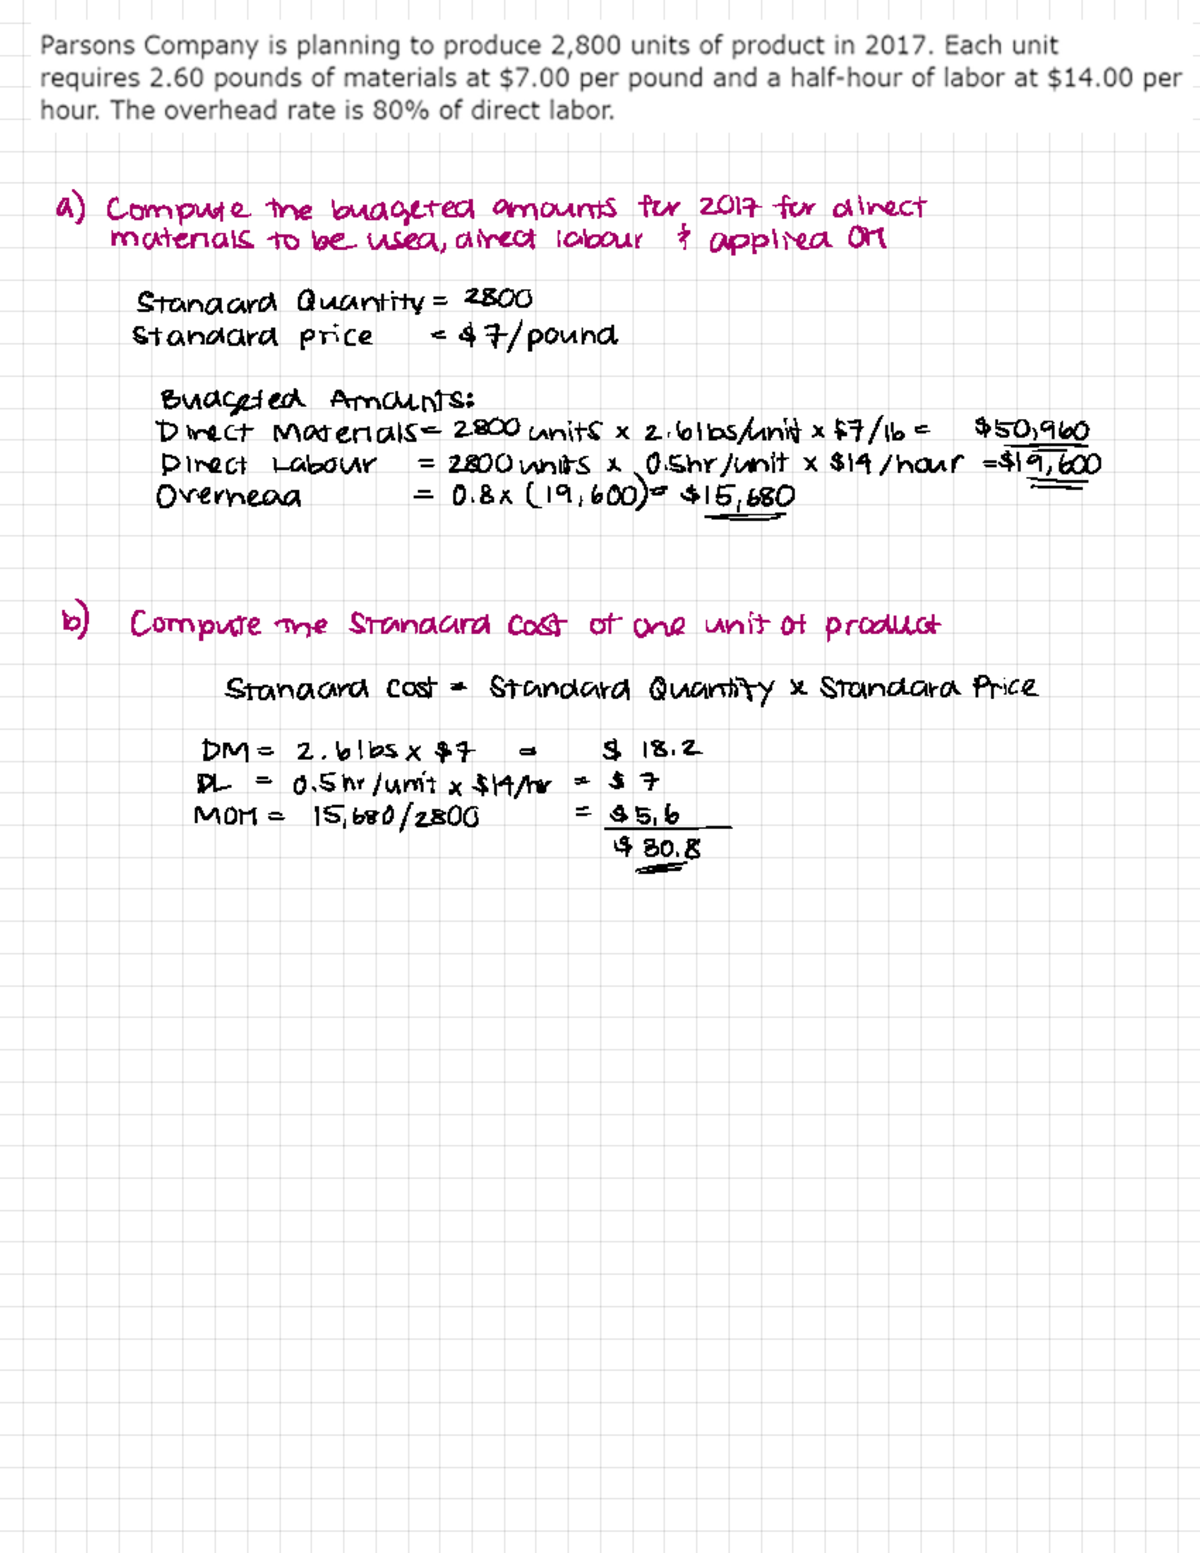 Parsons Company is planning to produce 2,800 units of product in 2017. Each unit
requires 2.60 pounds of materials at $7.00 per pound and a half-hour of labor at $14.00 per
hour. The overhead rate is 80% of direct labor.
a) Compute the budgeted amounts for 2017 for direct
materials to be used, direct labour & applied OH
Standard Quantity = 2800
Standard price = $7/pound
Budgeted Amounts:
Direct Materials = 2800 units x 2.6lbs/unit x $7/lb = $50,960
Direct Labour = 2800 units x 0.5hr/unit x $14/hour = $19,600
Overhead = 0.8x (19,600) = $15,680
b) Compute the Standard Cost of one unit of product
Standard Cost = Standard Quantity x Standard Price
DM = 2.6lbs x $7 = $ 18.2
DL = 0.5hr/unit x $14/hr = $ 7
MOH = 15,680/2800 = $5,6
$ 30.8